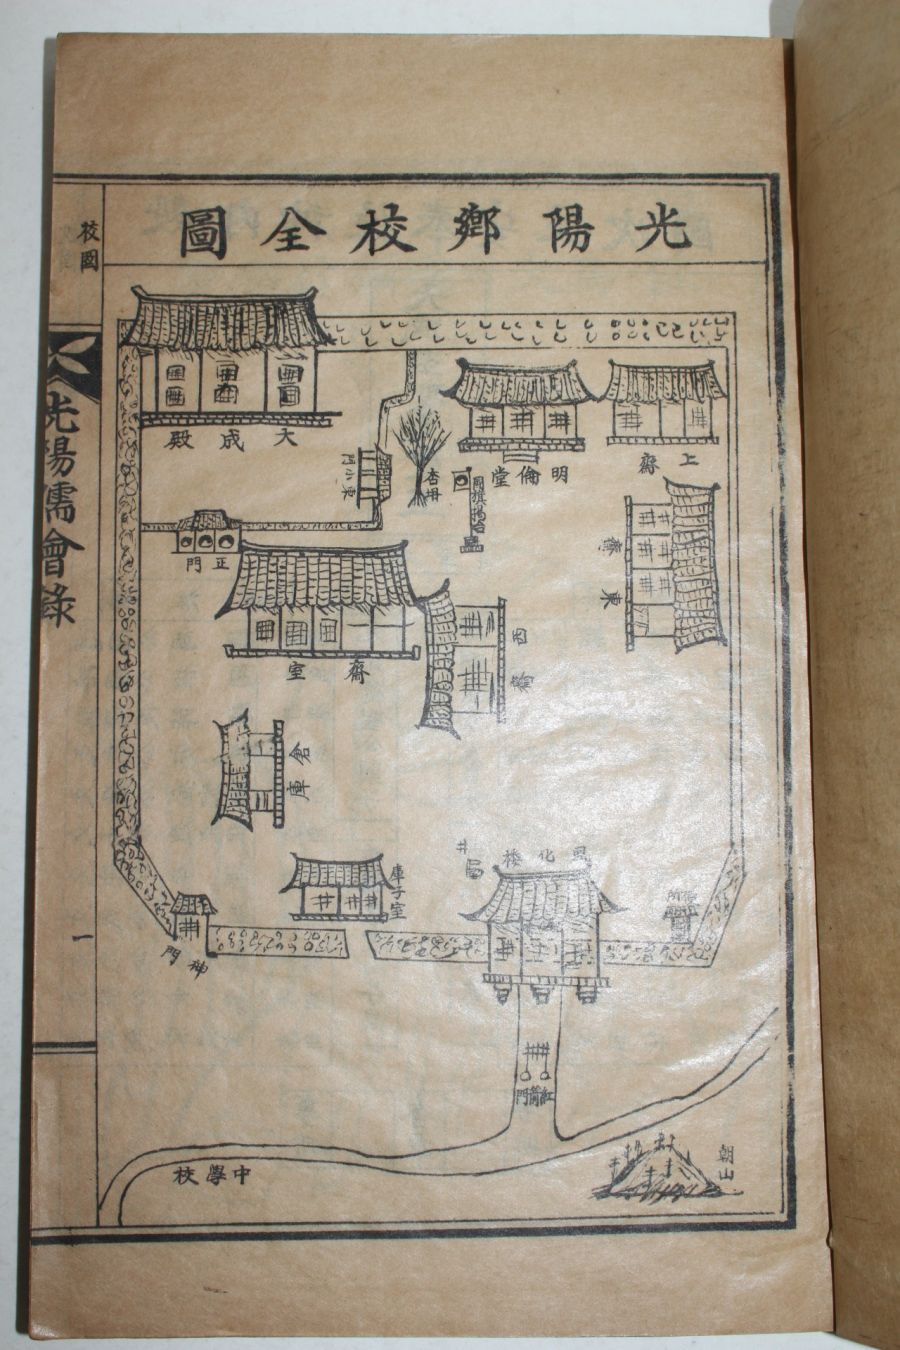 光陽鄕校全圖
校圖
光陽儒會錄
一
大成殿
明倫堂
上齋
東小門
杏樹
東齋
正門
齋室
西齋
倉庫
庫子室
井
風化樓
神門
紅箭門
中學校
朝山